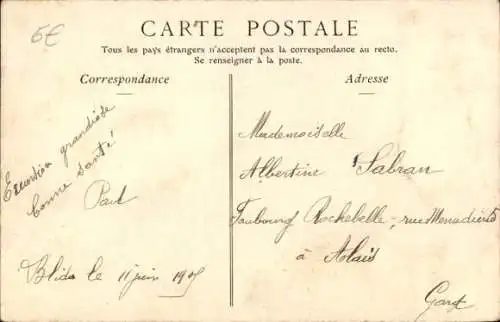 6€
CARTE POSTALE
Tous les pays étrangers n'acceptent pas la correspondance au recto.
Se renseigner à la poste.
Correspondance
Excursion grandiose
bonne santé
Paul
Blida le 11 juin
Adresse
Mademoiselle
Albertine Sabran
Faubourg Rochebelle, rue
à Alais
Gard